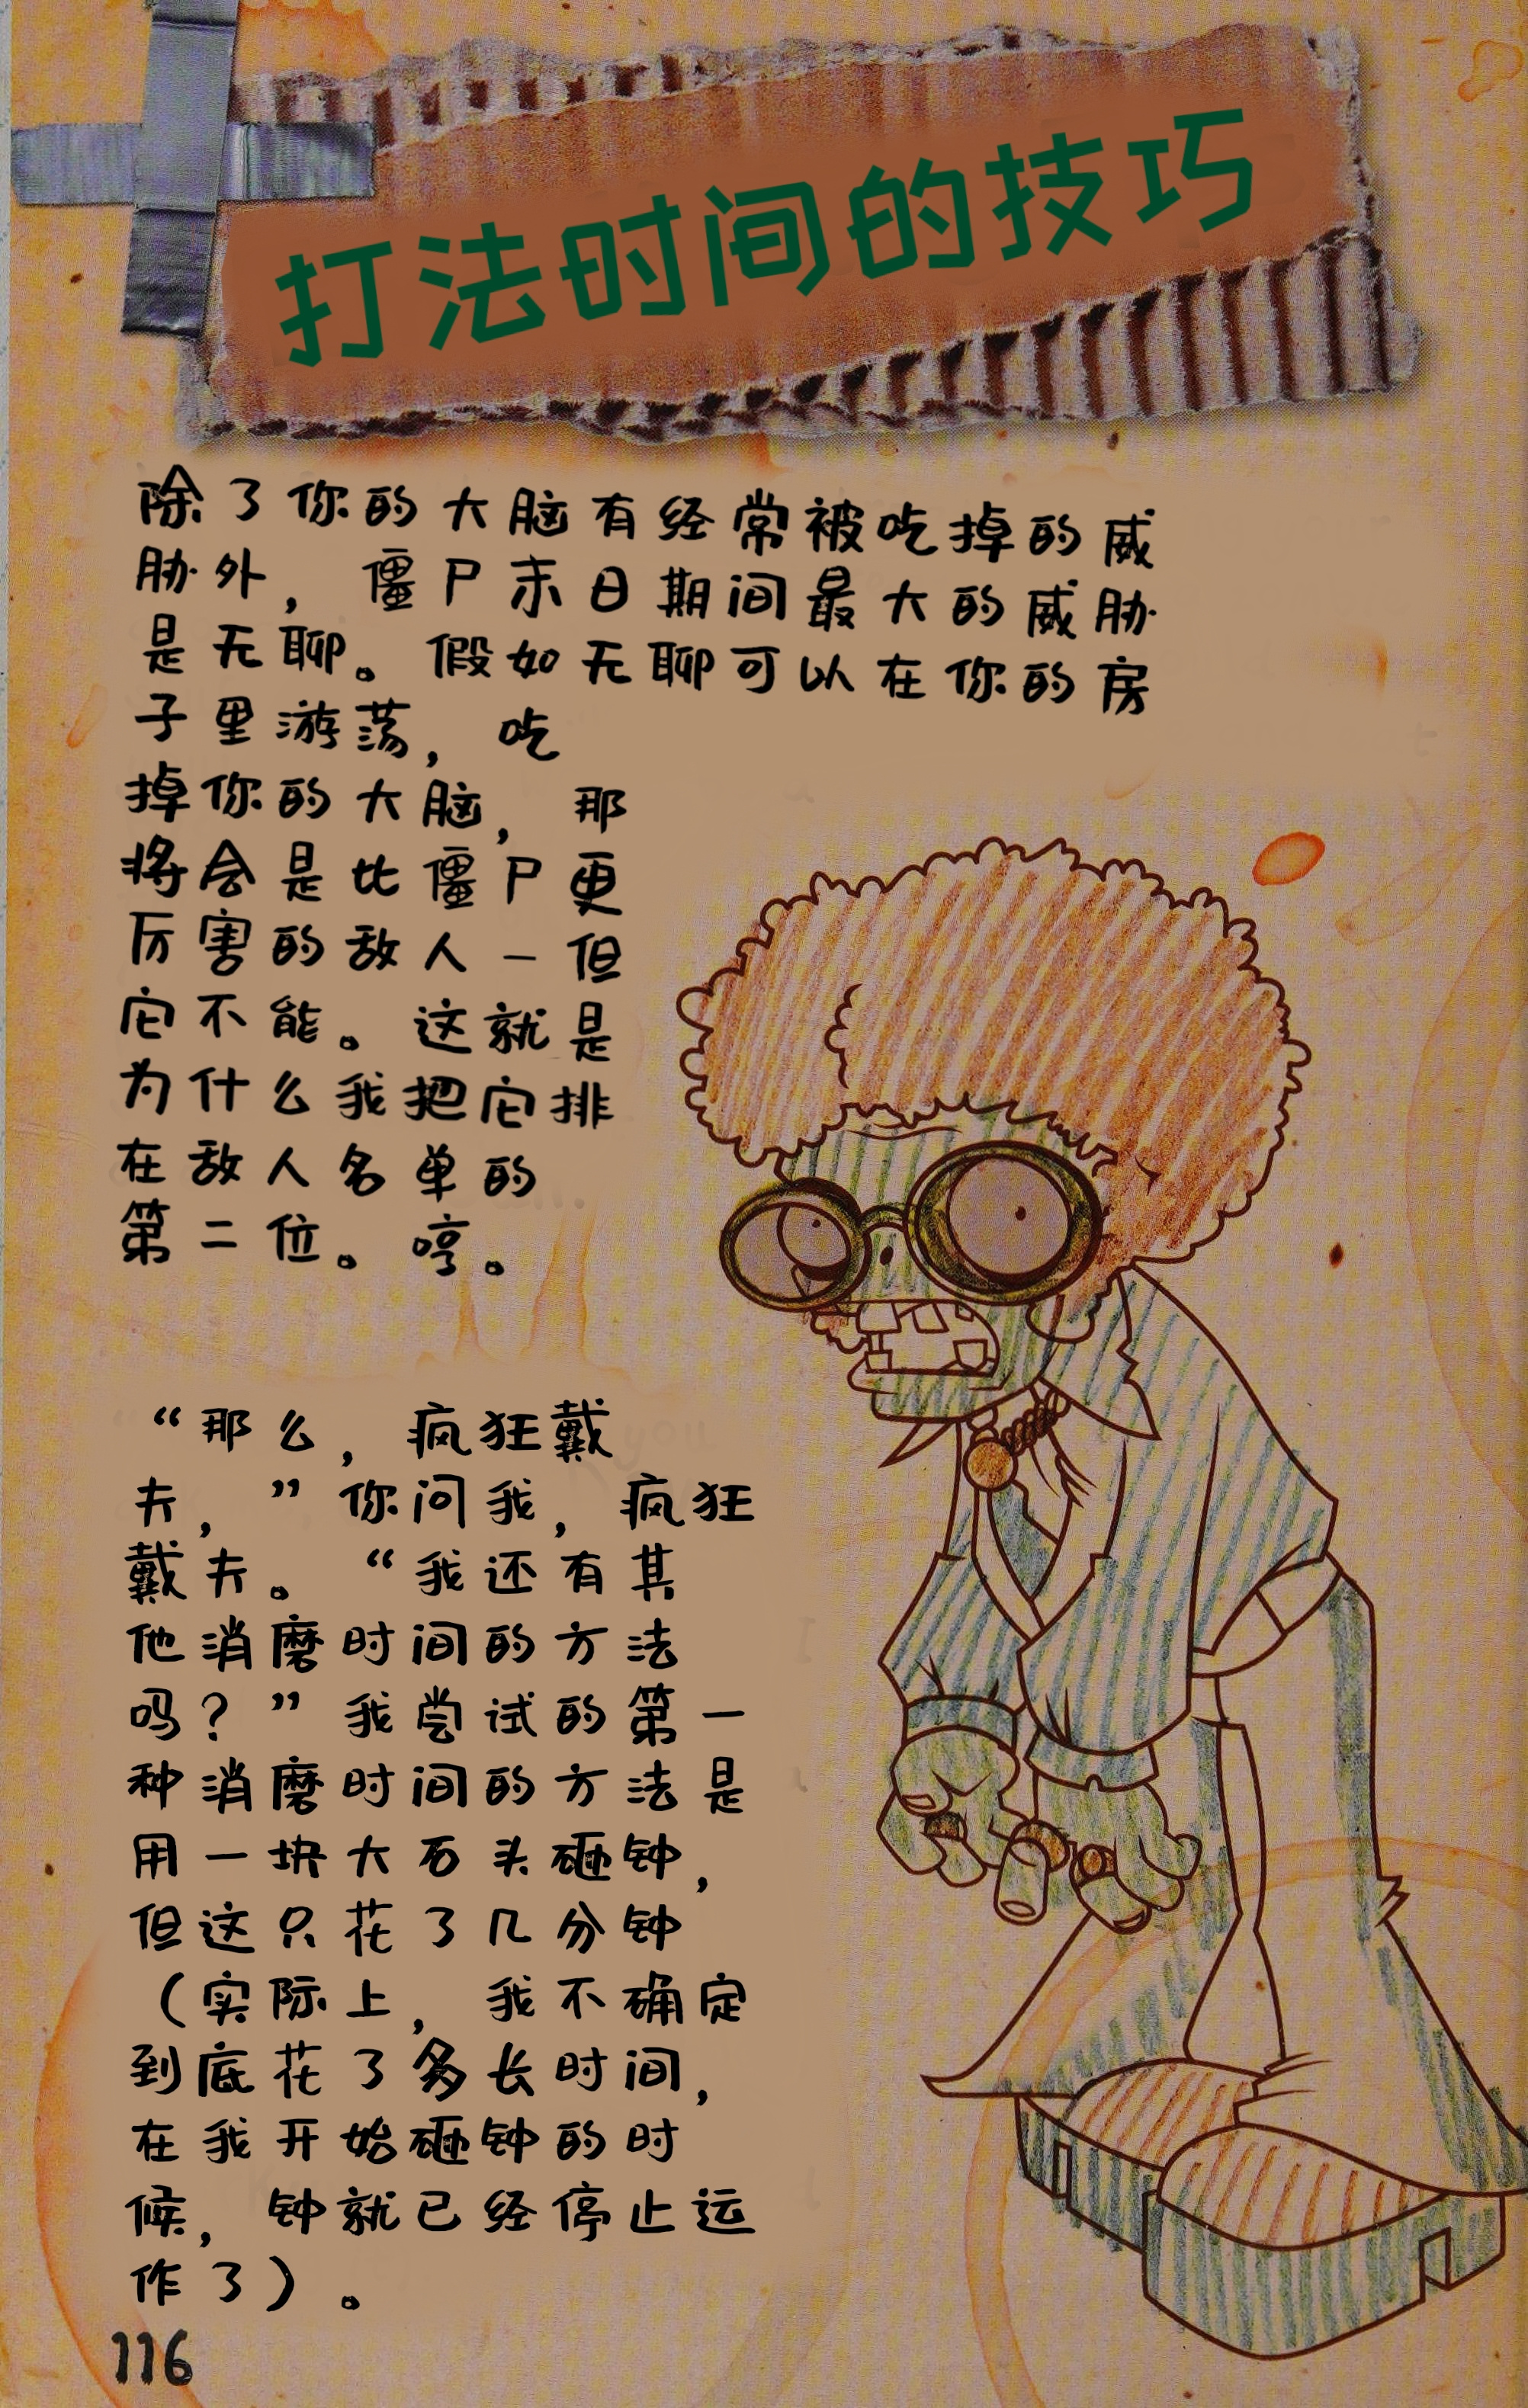 打法时间的技巧
除了你的大脑有经常被吃掉的威
胁外，僵尸末日期间最大的威胁
是无聊。假如无聊可以在你的房
子里游荡，吃
掉你的大脑，那
将会是比僵尸更
厉害的敌人－但
它不能。这就是
为什么我把它排
在敌人名单的
第二位。哼。
“那么，疯狂戴
夫，”你问我，疯狂
戴夫。“我还有其
他消磨时间的方法
吗？”我尝试的第一
种消磨时间的方法是
用一块大石头砸钟，
但这只花了几分钟
（实际上，我不确定
到底花了多长时间，
在我开始砸钟的时
候，钟就已经停止运
作了）。
116